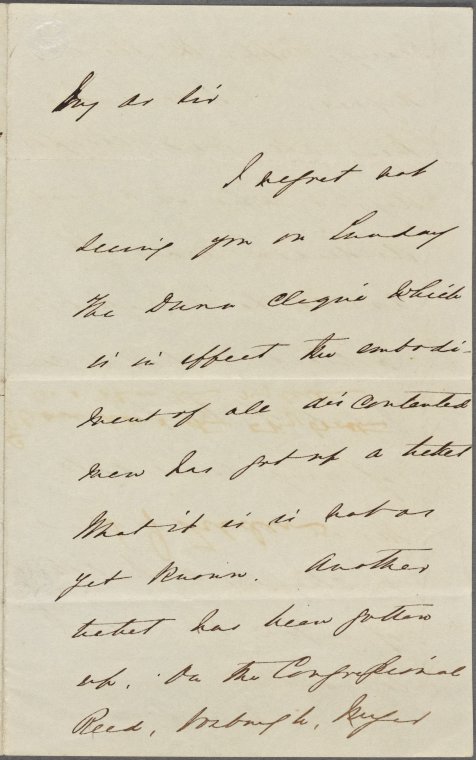 My dr Sir
I regret not
seeing you on Sunday
The Dunn Cliqué Which
is in effect the embodi-
ment of all discontented
men has got up a ticket
What it is is not as
yet Known. Another
ticket has been gotten
up. On the Congressional
Reed,